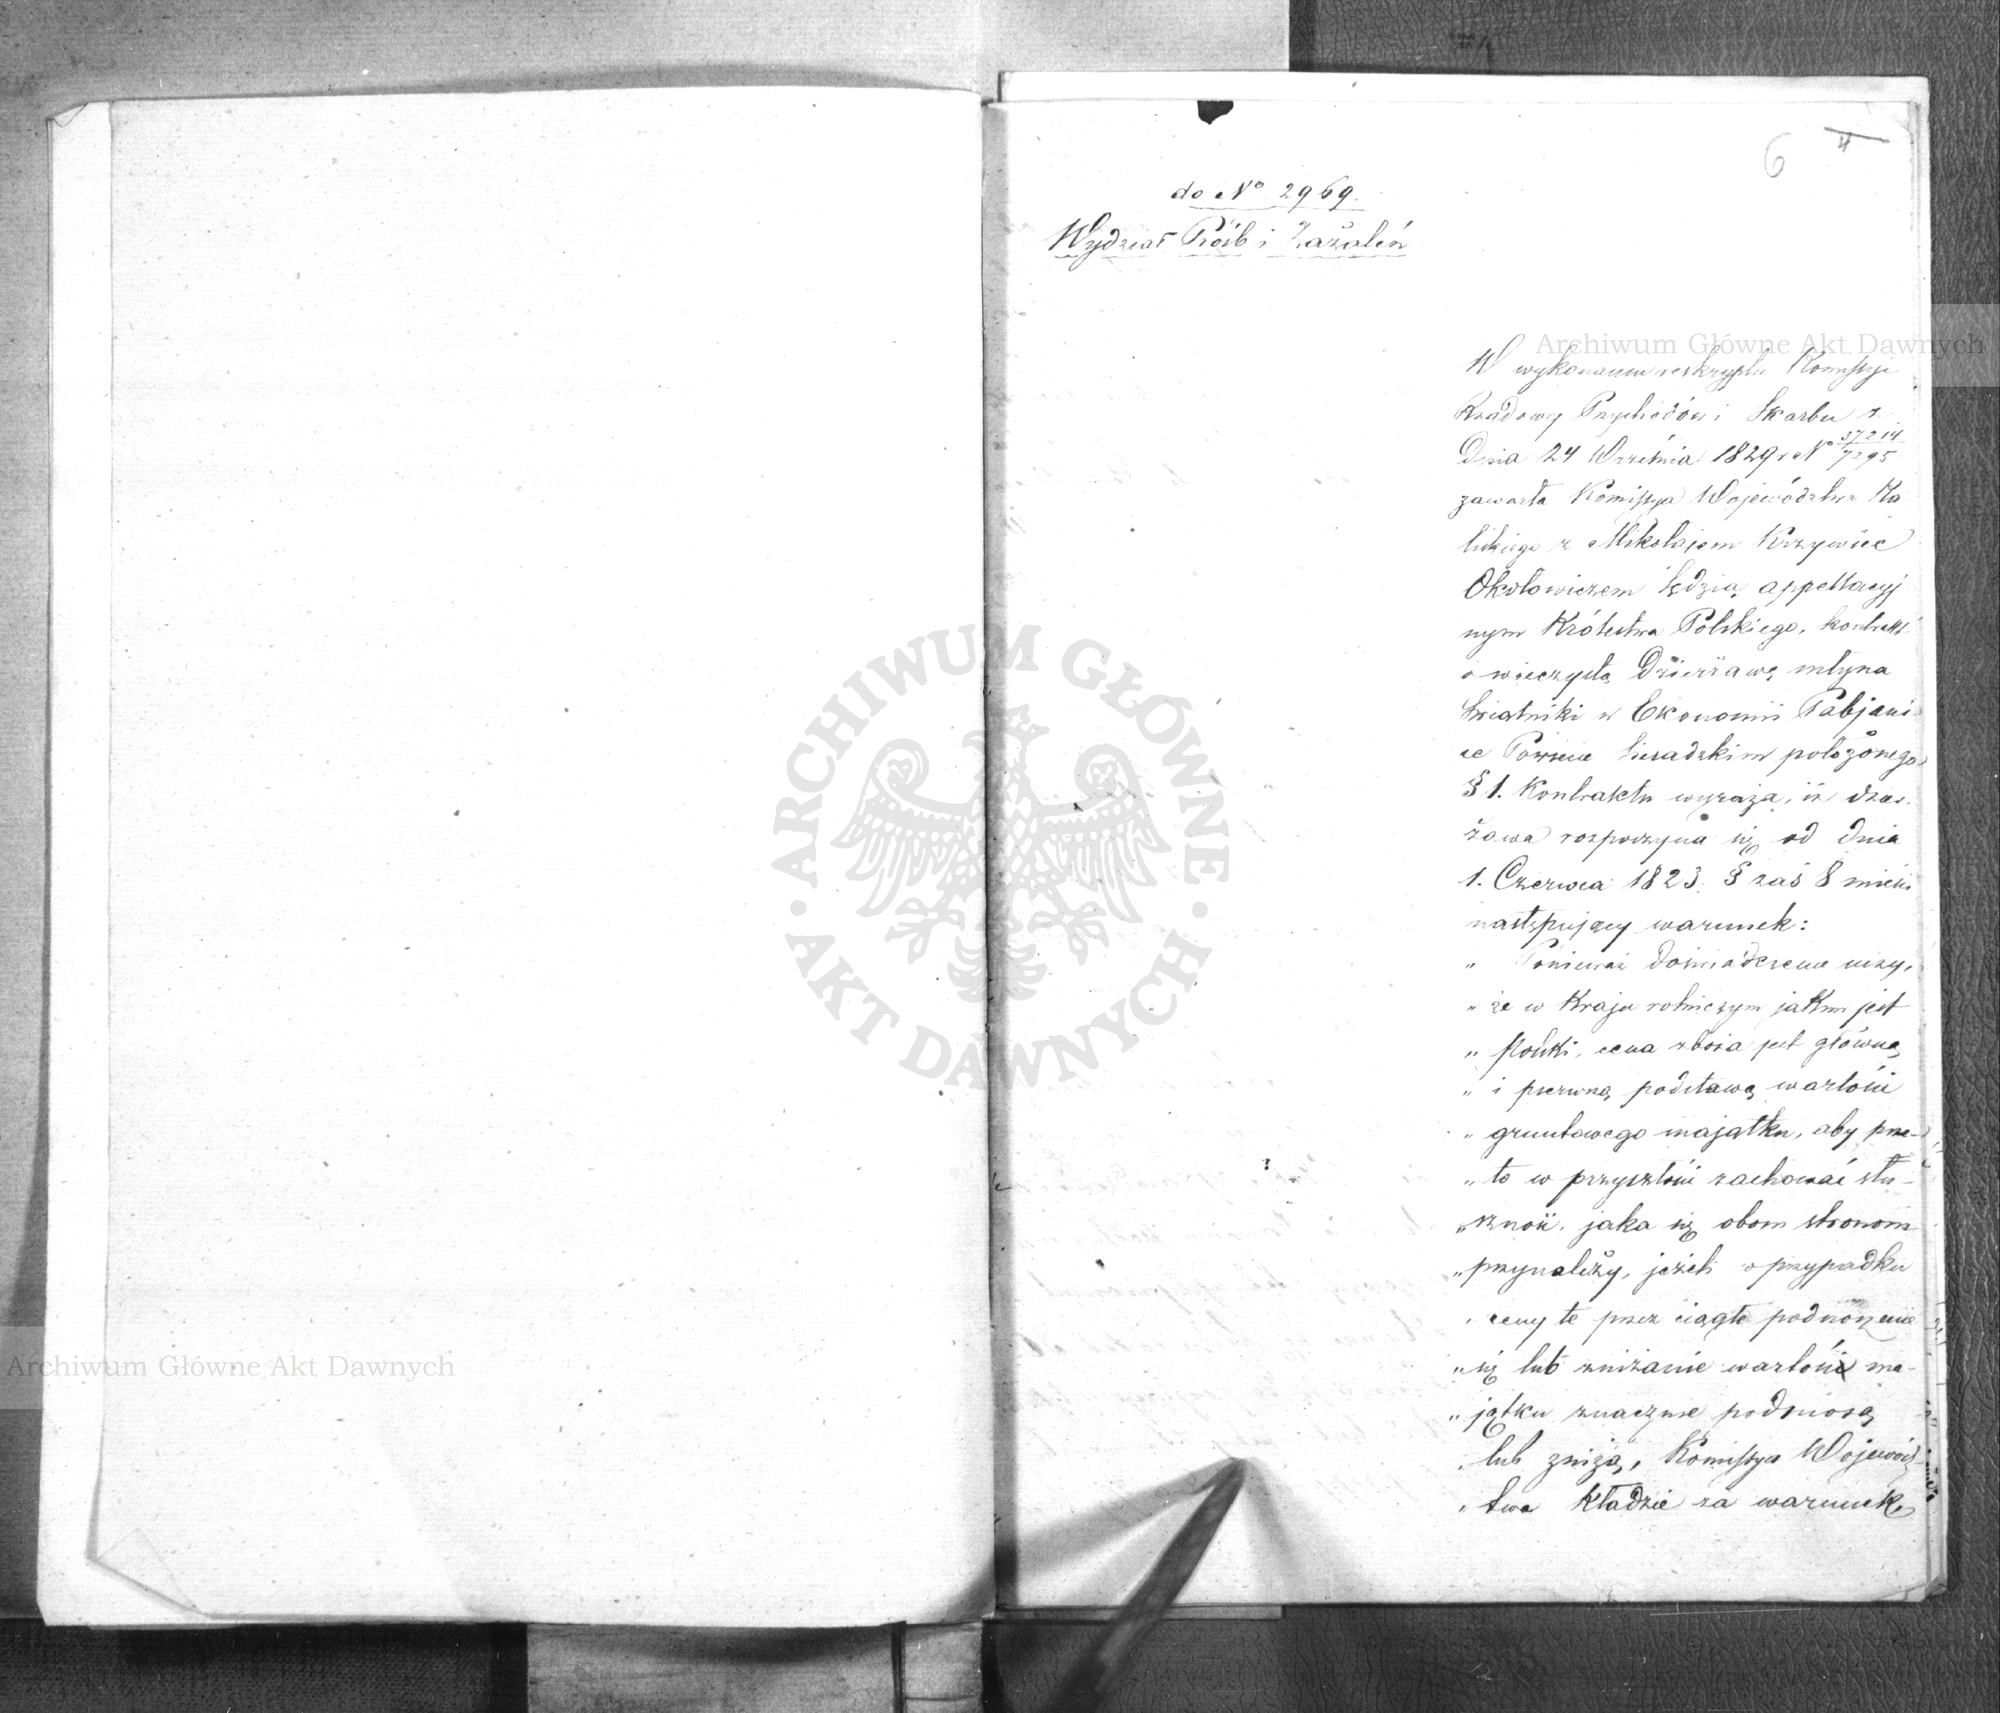 6 4
do No 2969.
Wydział Próśb i Zażaleń
Archiwum Główne Akt Dawnych
W wykonaniu reskryptu Komissyi
Rządowey Przychodów i Skarbu z
Dnia 24 Września 1829 r No 37214/7295
zawarła Komissya Województwa Ka
liskiego z Mikołajem Krzywiec
Okołowiczem Sędzią appellacyj
nym Królestwa Polskiego, kontrakt
o wieczystą Dzierżawę młyna
Świątniki w Ekonomii Pabjani-
ce Powiecie Sieradzkim położonego
§ 1. Kontraktu wyraża, iż dzier-
żawa rozpoczyna się od dnia
1. Czerwca 1823. § zaś 8 mieści
następujący warunek:
„ Ponieważ doświadczenie uczy,
„ że w Kraju rolniczym jakim jest
„ Polski, cena zboża jest główną
„ i pierwszą podstawą wartości
„ gruntowego majątku, aby prze-
„ to w przyszłości zachować słu-
„ szność, jaka się obom stronom
„ przynależy, jeżeli w przypadku
„ ceny te przez ciągłe podnoszenie
„ się lub zniżanie wartość ma-
„ jątku znacznie podniosą
„ lub zniżą, Komissya Wojewódz-
„ twa kładzie za warunek,
ARCHIWUM GŁÓWNE · AKT DAWNYCH ·
Archiwum Główne Akt Dawnych